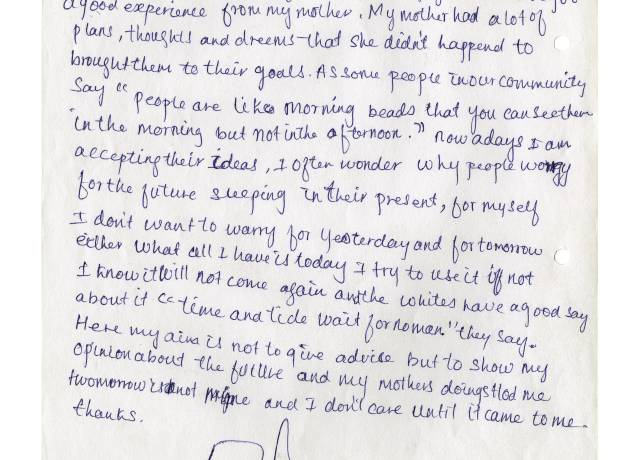 a good experience from my mother. My mother had a lot of
plans, thoughts and dreems that she didn't happend to
brought them to their goals. As some people in our community
say "people are like morning beads that you can see them
in the morning but not in the afternoon." now adays I am
accepting their ideas, I often wonder why people worry
for the future sleeping in their present, for my self
I don't want to warry for yesterday and for tomorrow
either what all I have is today I try to use it if not
I know it will not come again and the whites have a good say
about it "time and tide wait for no man." they say.
Here my aim is not to give advice but to show my
opinion about the future and my mothers doings tlod me
twomorrow is not mine and I don't care until it came to me.
thanks.